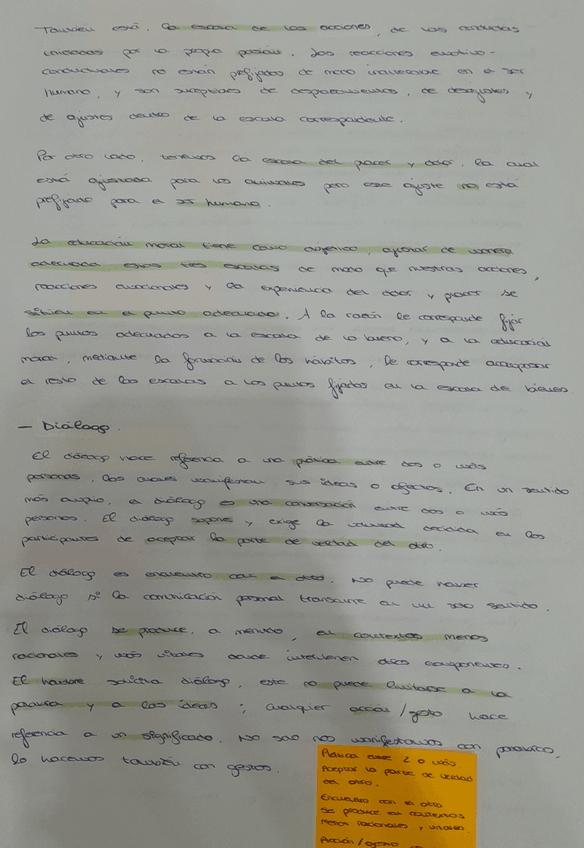 También está, la escala de las acciones, de las conductas
iniciadas por la propia pasión. Las reacciones emotivo-
conductuales no están prefijadas de modo inamovible en el ser
humano, y son susceptibles de desproporciones, de desajustes y
de ajustes dentro de la escala correspondiente.
Por otro lado, tenemos la escala del placer y dolor, la cual
está ajustada para los animales pero ese ajuste no está
prefijado para el ser humano.
La educación moral tiene como objetivo, ajustar de manera
adecuada estas tres escalas de modo que nuestras acciones,
reacciones emocionales y la experiencia del dolor y placer se
sitúen en el punto adecuado. A la razón le corresponde fijar
los puntos adecuados a la escala de lo bueno, y a la educación
moral, mediante la formación de los hábitos, le corresponde acompasar
el resto de las escalas a los puntos fijados en la escala de bienes
— Diálogo.
El diálogo hace referencia a una plática entre dos o más
personas, las cuales manifiestan sus ideas o afectos. En un sentido
más amplio, el diálogo es una conversación entre dos o más
personas. El diálogo supone y exige la voluntad decidida en los
participantes de aceptar la parte de verdad del otro.
El diálogo es encuentro con el otro. No puede haber
diálogo si la comunicación personal transcurre en un solo sentido.
El diálogo se produce, a menudo, en contextos menos
racionales y más vitales donde intervienen otros componentes.
El hombre solicita diálogo, este no puede limitarse a la
palabra y a las ideas; cualquier acción/gesto hace
referencia a un significado. No solo nos manifestamos con palabras,
lo hacemos también con gestos.
Plática entre 2 o más
Aceptar la parte de verdad
del otro.
Encuentro con el otro
Se produce en contextos
menos racionales y vitales.
Acción/gesto